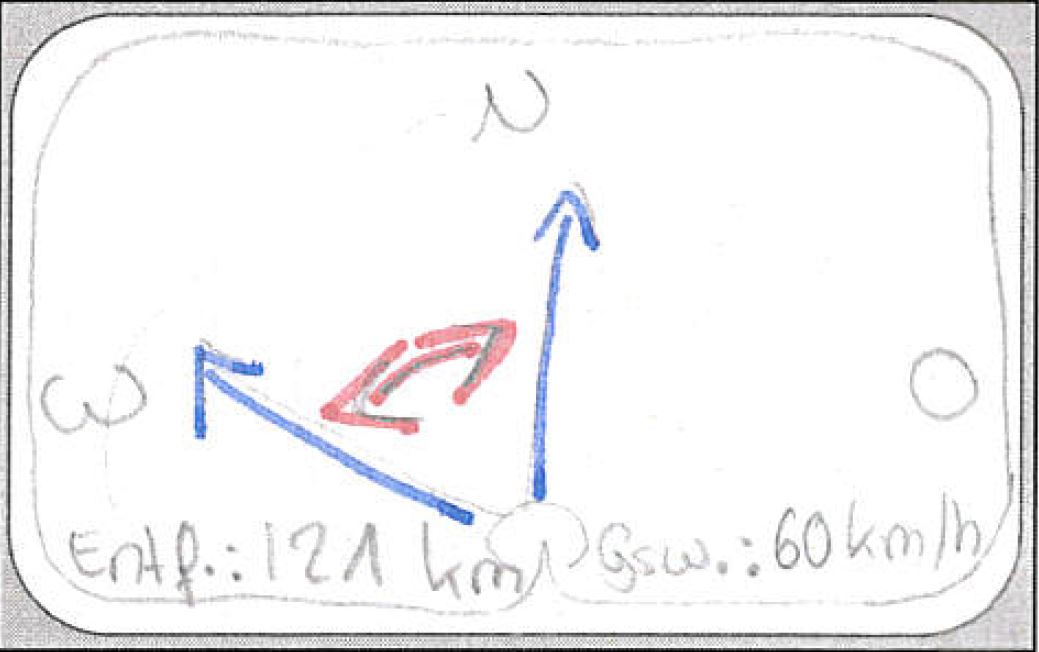 N
W
O
Entf.: 121 km
Gsw.: 60 km/h